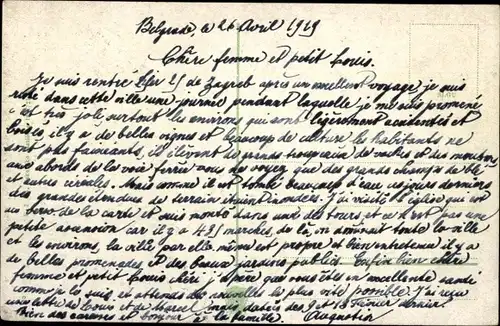 Belgrade le 26 Avril 1919
Chère femme et petit Louis.
Je suis rentré hier 25 de Zagreb après un excellent voyage, je suis
resté dans cette ville une journée pendant laquelle je me suis promené
c'est très joli surtout les environs qui sont légèrement accidentés et
boisés il y a de belles vignes et beaucoup de culture les habitants ne
sont pas fainéants, ils élèvent de grands troupeaux de vaches et des moutons
aux abords de la voie ferrée vous ne voyez que des grands champs de blé
et autres céréales. Mais comme il est tombé beaucoup d'eau ces jours derniers
des grandes étendues de terrain étaient inondées. J'ai visité l'église qui est
au verso de la carte et suis monté dans une des tours, et ce n'est pas une
petite ascension car il y a 435 marches, de là, on dominait toute la ville
et les environs, la ville par elle même est propre et bien entretenue il y a
de belles promenades et des beaux jardins publics. Enfin bien chère
femme et petit Louis chéri j'espère que vous êtes en excellente santé
comme je le suis, et attends des nouvelles le plus vite possible. J'ai reçu
une lettre de Louis et de Marcel mais datées des 9 et 18 dernier.
Bien des caresses et bonjour à la famille. Augustin